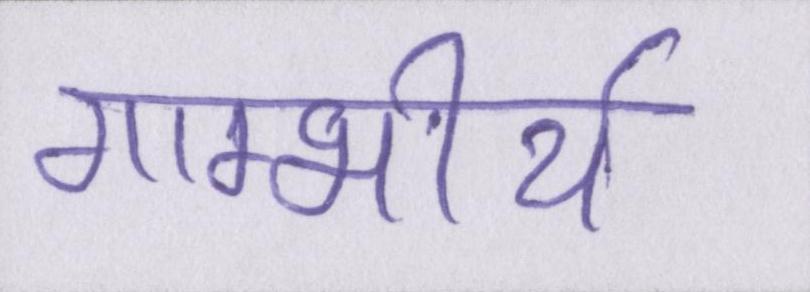 गाम्भीर्य